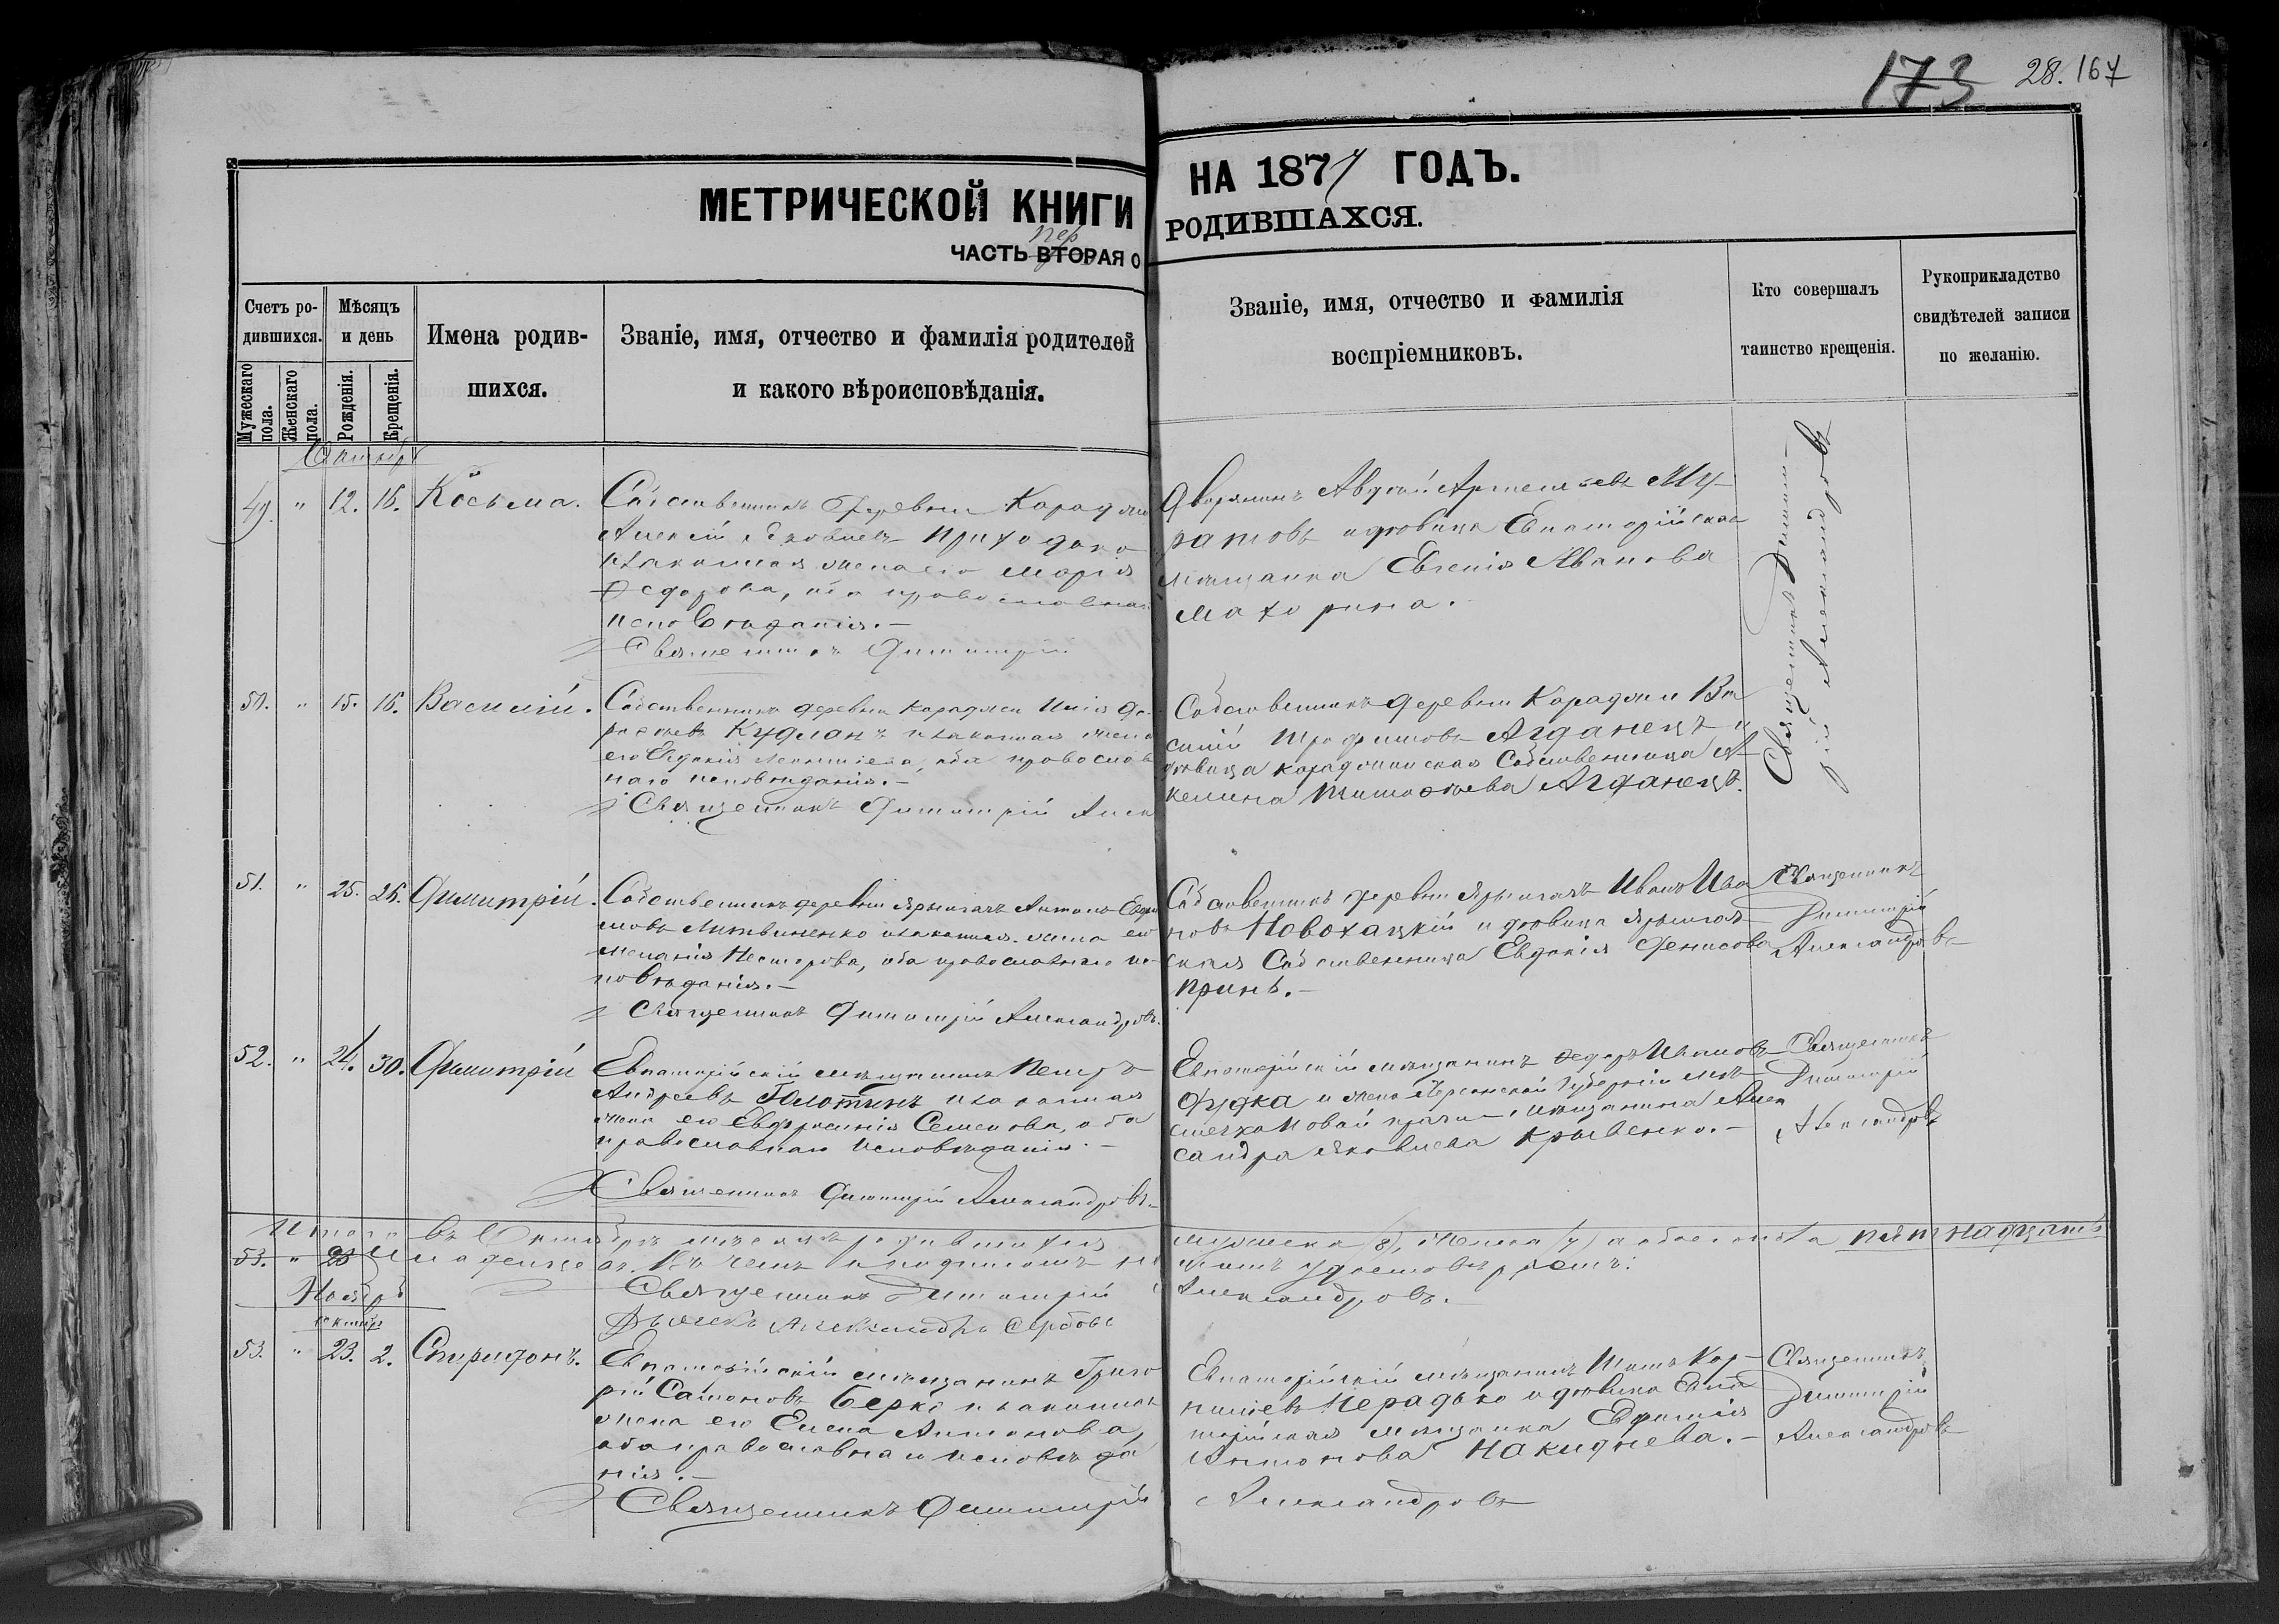 173 28. 167
МЕТРИЧЕСКОЙ КНИГИ НА 1877 ГОДЪ.
ЧАСТЬ ВТОРАЯ О РОДИВШАХСЯ.
пер
Счетъ родившихся.
Мужескаго пола.
Женскаго пола.
Мѣсяцъ и день
Рожденія.
Крещенія.
Имена родив-
шихся.
Званіе, имя, отчество и фамилія родителей
и какого вѣроисповѣданія.
Званіе, имя, отчество и фамилія
воспріемниковъ.
Кто совершалъ
таинство крещенія.
Рукоприкладство
свидѣтелей записи
по желанію.
Октябрь
49. " 12. 16. Косьма.
Собственникъ деревни Караджи
Алексій Яковлевъ Приходько
и законная жена его Марія
Федорова, оба православнаго
исповѣданія.—
Священникъ Димитрій
Дворянинъ Авдій Артемьевъ Му-
ратовъ и дѣвица Евпаторійская
мѣщанка Евгенія Иванова
Махорина.
Священникъ Димит-
рій Александровъ
50. " 15. 16. Василій.
Собственникъ деревни Караджи
Кудланъ и законная жена
его Евдокія оба православ
наго исповѣданія.—
Священникъ Димитрій Алек
Собственникъ деревни Караджи Ва
силій Трофимовъ Агданецъ и
дѣвица Караджинская Собственница А-
келина Тимофѣева Агданецъ.
51. " 25. 26. Димитрій.
Собственникъ деревни Ярылгачъ Антонъ
мовъ Литвиненко и законная жена его
Меланія Несторова, оба православнаго ис-
повѣданія.—
Священникъ Димитрій Александровъ.
Собственникъ деревни Ярылгачъ Иванъ Ива
новъ Новохацкій и дѣвица Ярылгач-
ская Собственница Евдокія Денисова
Принь.—
Священникъ
Димитрій
Александровъ
52. " 24. 30. Димитрій
Евпаторійскій мѣщанинъ Петръ
Андреевъ Галоткинъ и законная
жена его Евфросинія Семенова, оба
православнаго исповѣданія.—
Священникъ Димитрій Александровъ.
Евпаторійскій мѣщанинъ Федоръ
Дудка и жена Херсонской Губерніи мѣ-
стечка Новой Праги мѣщанина Алек
сандра Яковлева Крывенко.—
Священникъ
Димитрій
Александровъ
Итого въ Октябрѣ мѣсяцѣ родившихся мужеска (8), женска (7) а обоего пола пятнадцать
53. " 28 Младенцевъ. Въ чемъ
удостовѣряемъ:
Ноябрь
Священникъ Димитрій Александровъ.
октябр
Дьячекъ Александръ Сербовъ
53. " 23. 2. Спиридонъ.
Евпаторійскій мѣщанинъ Григо
рій Самоновъ Берко и законная
жена его Елена Антонова,
оба православнаго исповѣда
нія.—
Священникъ Димитрій Александровъ
Евпаторійскій мѣщанинъ Титъ Кор-
ниліевъ Нерадько и дѣвица Евпа
торійская мѣщанка Евфимія
Антонова Накиднева.—
Священникъ
Димитрій
Александровъ